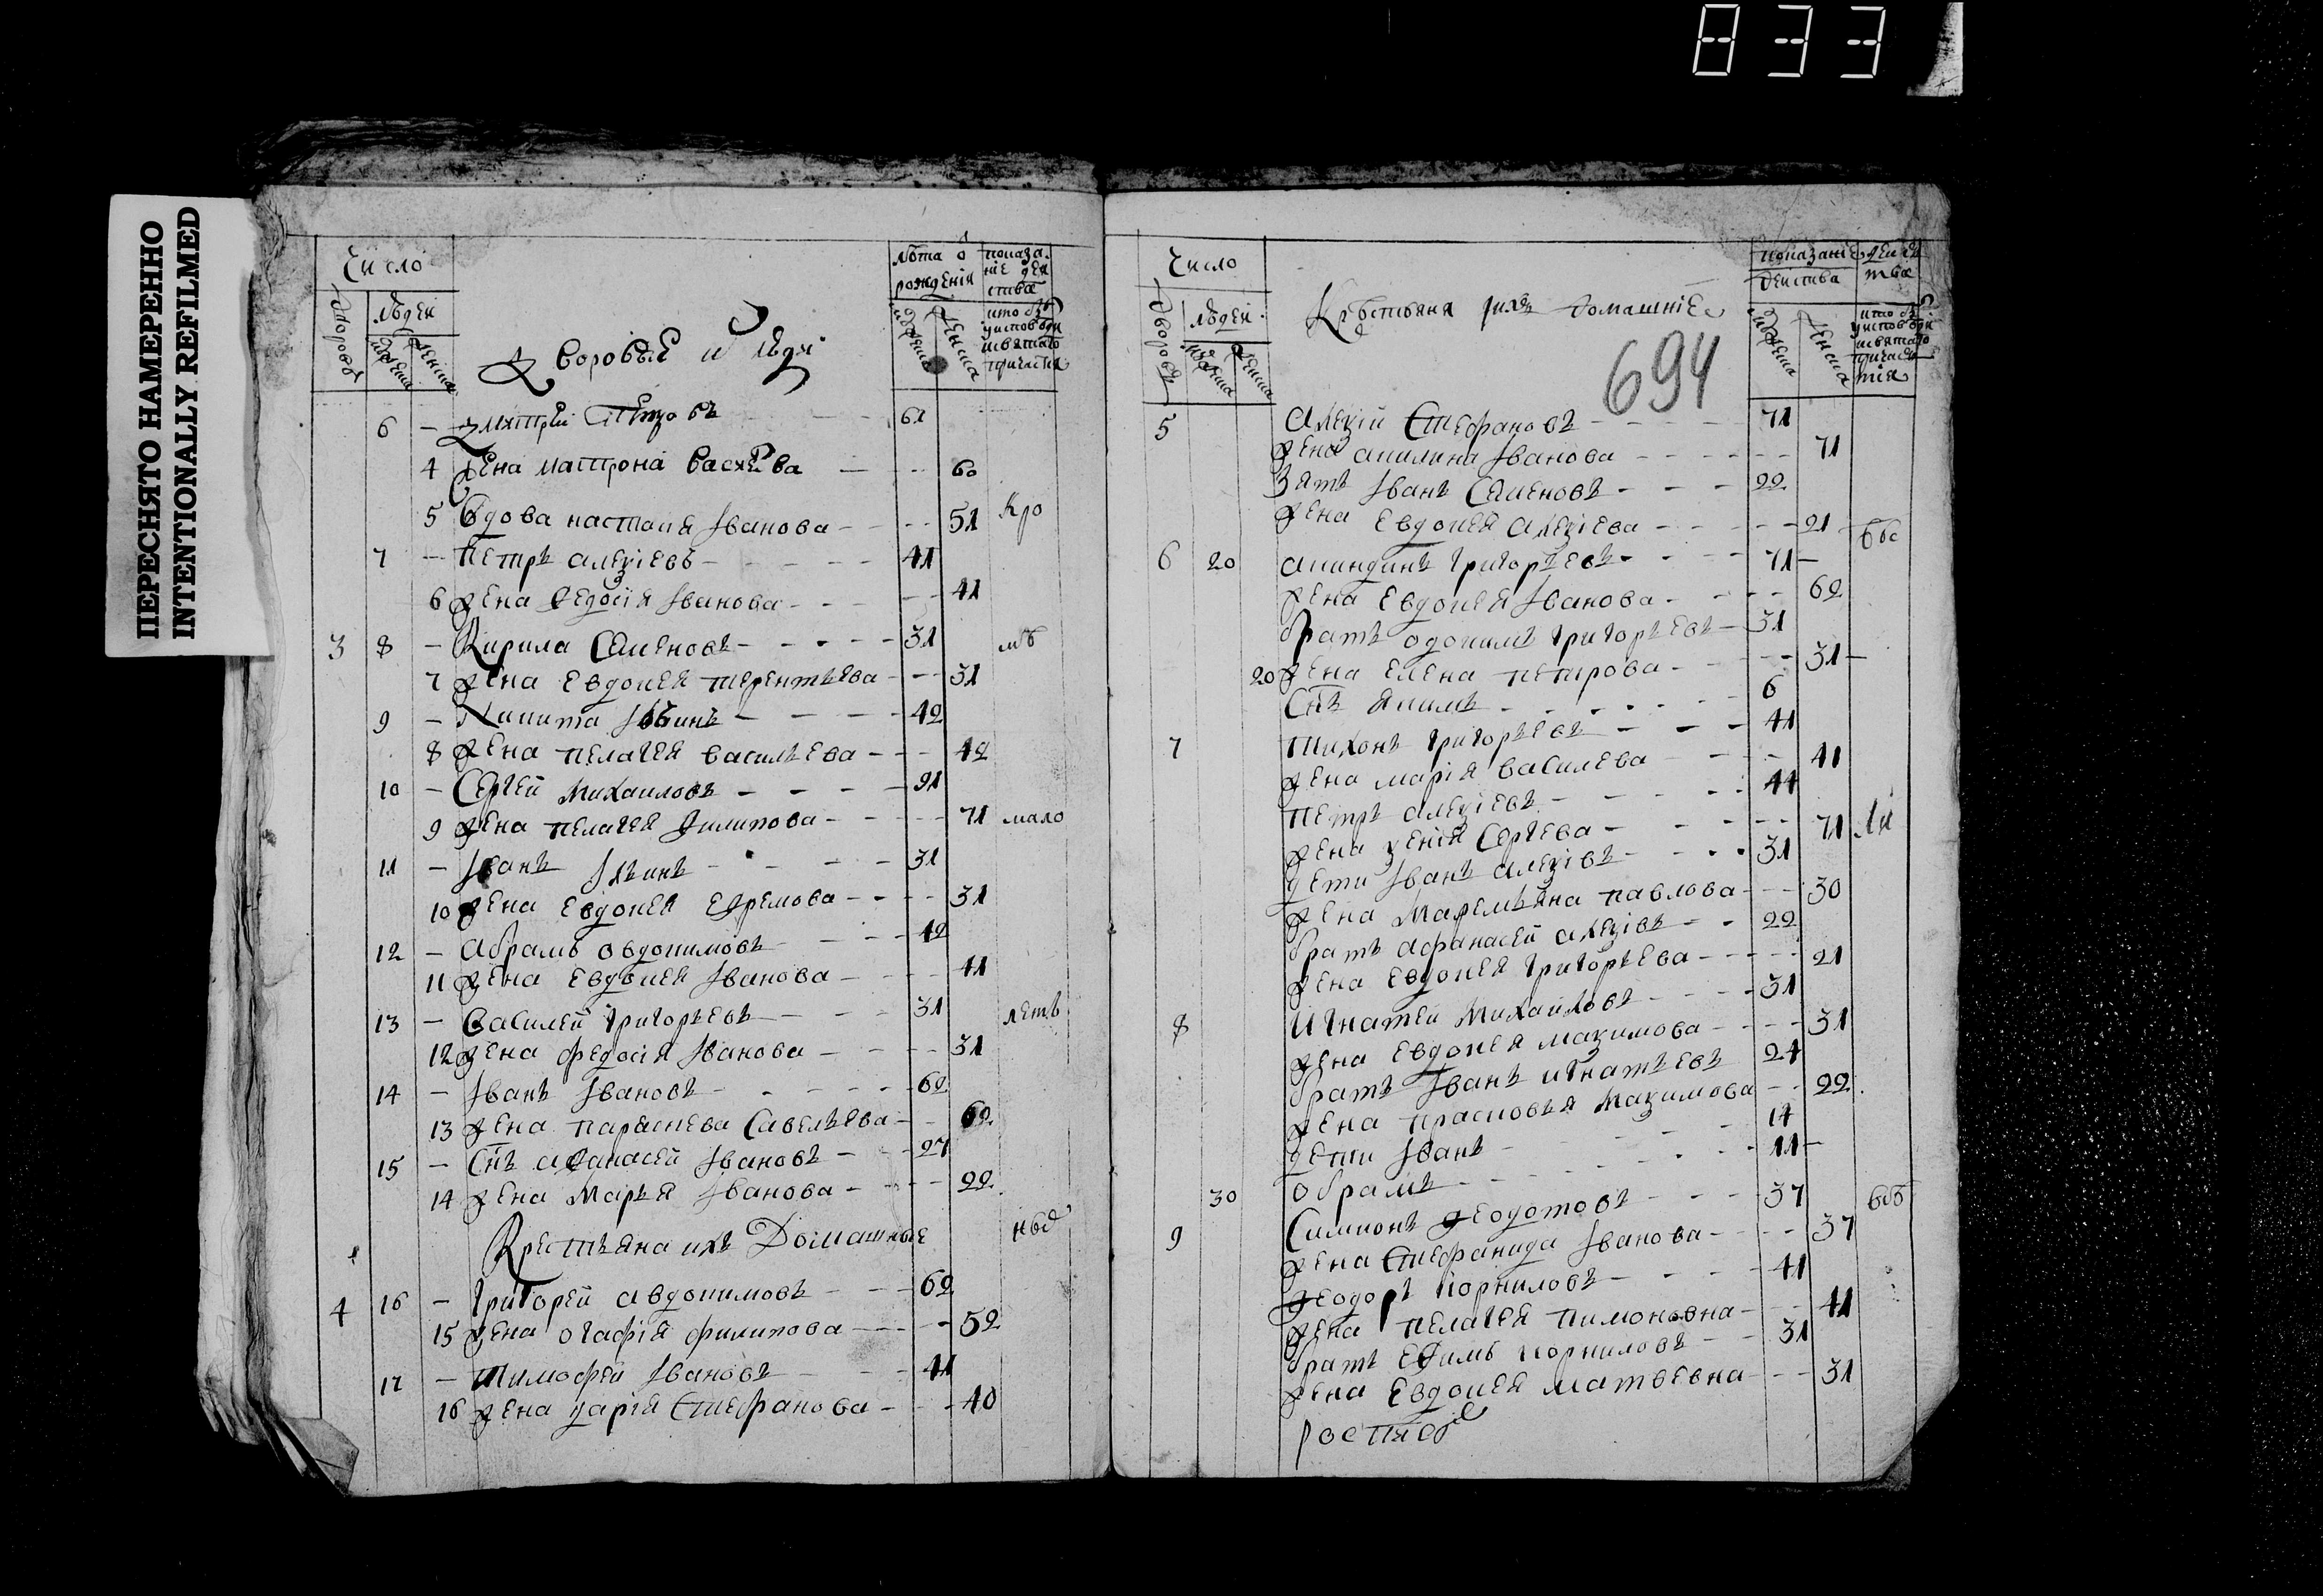 833
ПЕРЕСНЯТО НАМЕРЕННО
INTENTIONALLY REFILMED
Число
людеи
Дворовые люди
лѣта о
рождения
показа
ние деи
ства
6 — Дмитрей Петровъ 61
4 жена матрона васил‌ева — 60
5 Вдова настасия Iванова — 51 кро
7 — Петръ алеѯiевъ — 41
6 жена Ѳедосiя Iванова — 41
3 8 — Кирила Семеновъ — 31 мѣ
7 жена Евдокея терентьева — 31
9 — Никита Iвинъ — 42
8 жена пелагея васильева — 42
10 — Сергей Михаиловъ — 91
9 жена пелагея Ѳилипова — 71 мало
11 — Iванъ Iльинъ — 31
10 жена Евдокея Ефремова — 31
12 — Абрамъ овдокимовъ — 42
11 жена Евдокея Iванова — 41
13 — Василей григорьевъ — 31 летъ
12 жена федосiя Iванова — 31
14 — Iванъ Iвановъ — 62
13 жена параскева Савельева — 62
15 — Снъ аѲанасей Iвановъ — 27
14 жена Марья Iванова — 22
Крестьяна ихъ Домашные
4 16 — григорей авдокимовъ — 62
15 жена огафiя филипова — 52
17 — тимофей Iвановъ — 41
16 жена дарiя Стефанова — 40
Число
людеи
Крестьяня ихъ домашнiе
показание
деиства
694
5 Алеѯiй Стефановъ — 71
жена акилина Iванова — 71
Зять Iванъ Семеновъ — 22
жена Евдокея алеѯiева — 21
6 20 акиндинъ григорьевъ — 71
жена Евдокея Iванова — 62
братъ одокимъ григорьевъ — 31
20 жена Елена петрова — 31
Снъ якимъ — 6
7 Тихонъ григорьевъ — 41
жена марiя василева — 41
Петръ алеѯiевъ — 44
жена ѯенiя Сергева — 71
дети Iванъ алеѯiвъ — 31
жена Маремьяна павлова — 30
братъ афанасей алеѯiвъ — 22
жена Евдокея григорьева — 21
8 Игнатей Михаиловъ — 31
жена Евдокея маѯимова — 31
братъ Iванъ игнатьевъ 24
жена прасковья маѯимова — 22
дети Iванъ — 14
30 обрамъ — 11
9 Симионъ Ѳеодотовъ — 37
жена Стефанида Iванова — 37
Ѳеодоръ корниловъ — 41
жена пелагея пимоновна — 41
братъ ЕѲимъ корниловъ — 31
жена Евдокея матвевна — 31